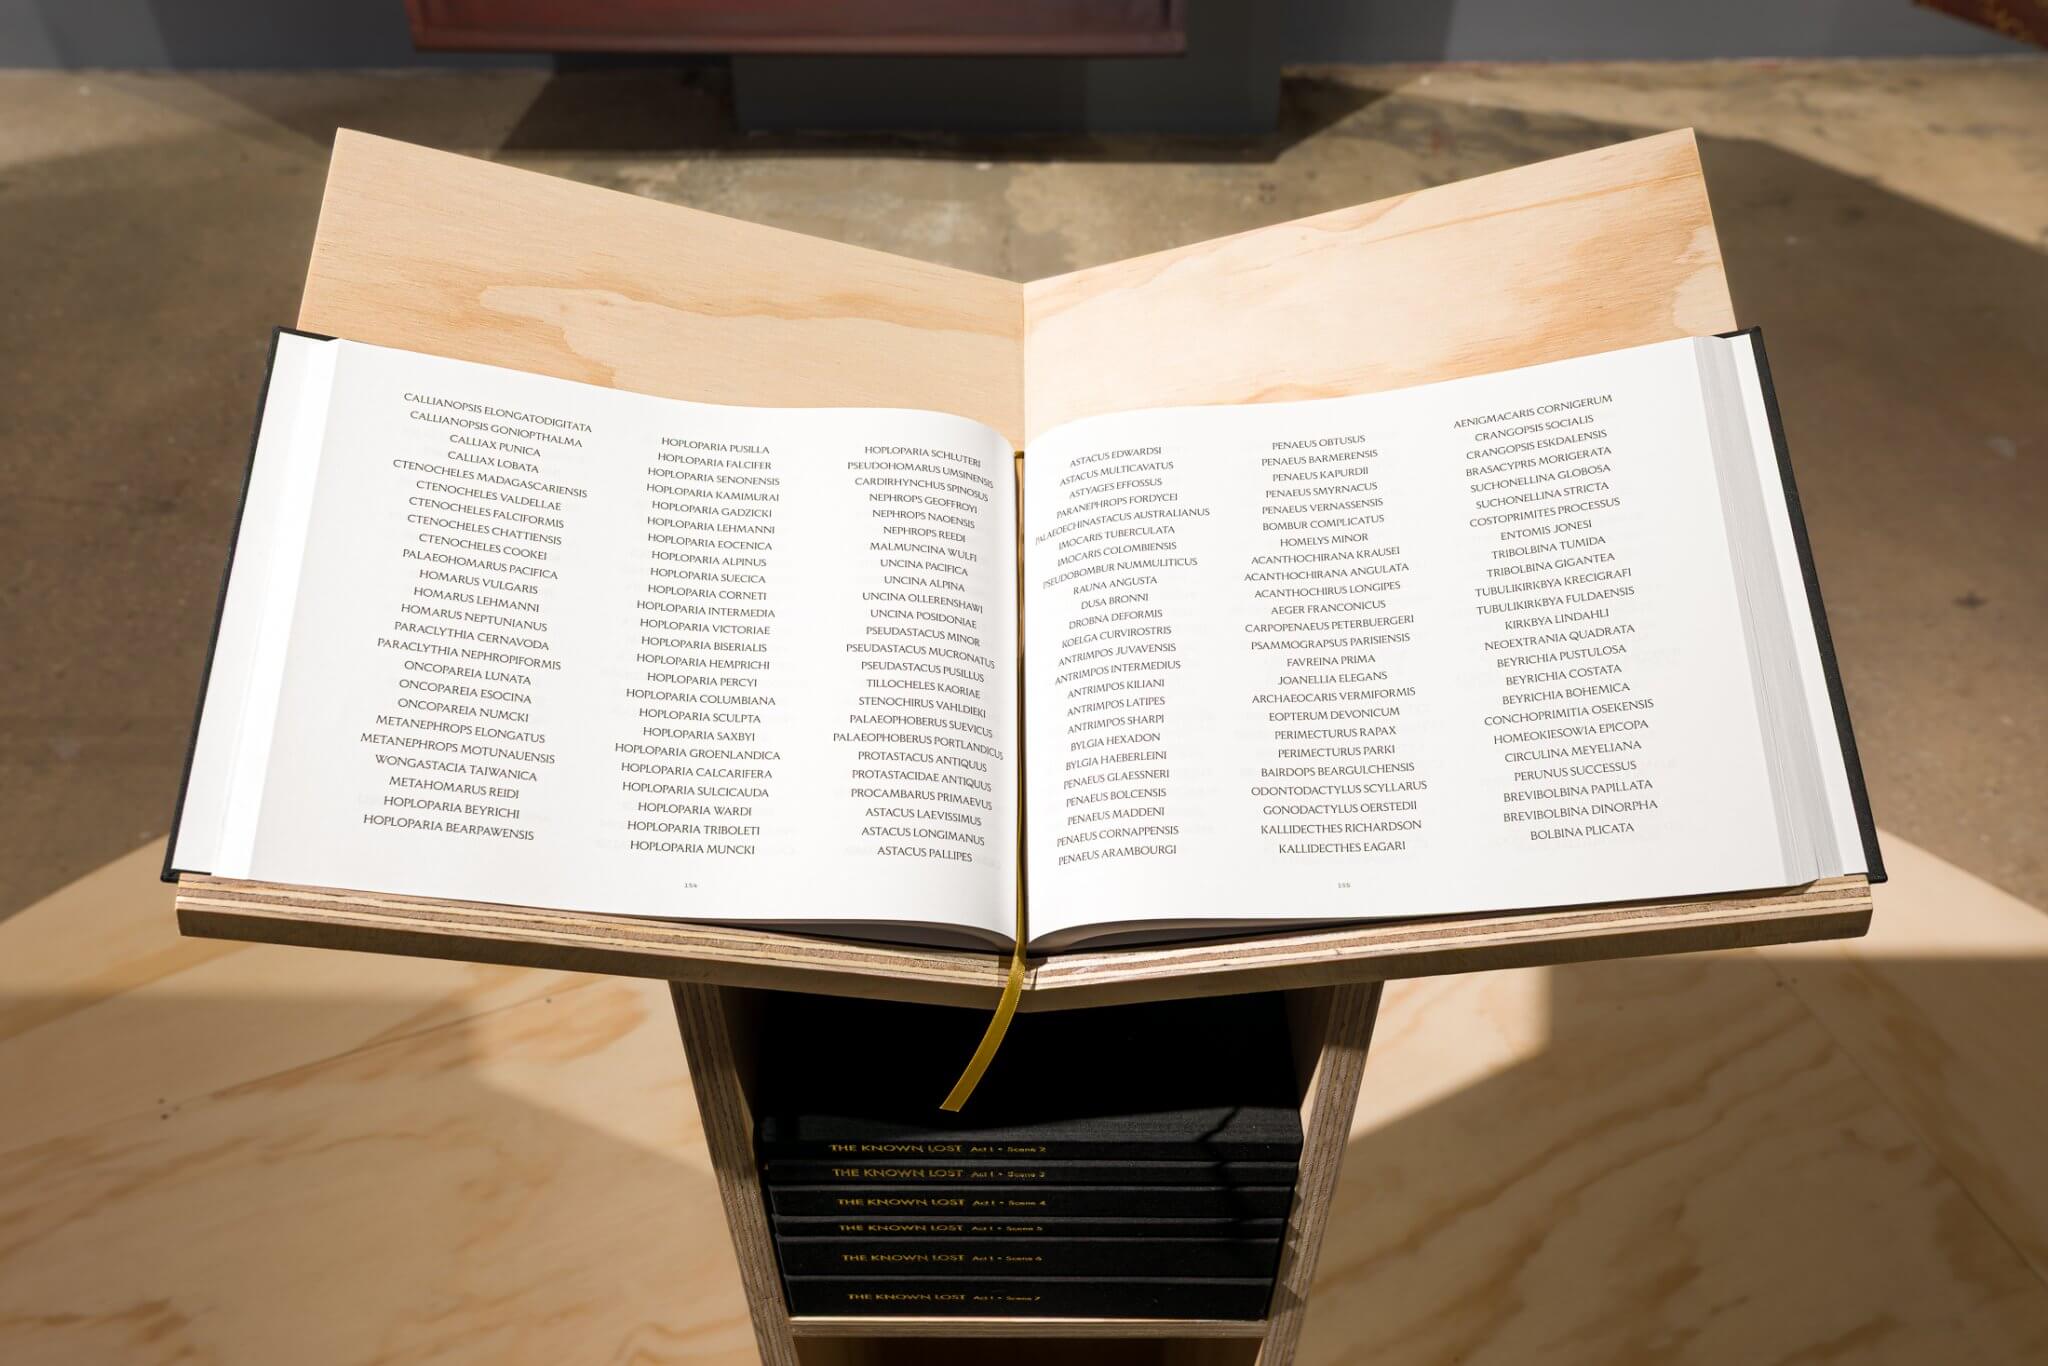 CALLIANOPSIS ELONGATODIGITATA
CALLIANOPSIS GONIOPTHALMA
CALLIAX PUNICA
CALLIAX LOBATA
CTENOCHELES MADAGASCARIENSIS
CTENOCHELES VALDELLAE
CTENOCHELES FALCIFORMIS
CTENOCHELES CHATTIENSIS
CTENOCHELES COOKEI
PALAEOHOMARUS PACIFICA
HOMARUS VULGARIS
HOMARUS LEHMANNI
HOMARUS NEPTUNIANUS
PARACLYTHIA CERNAVODA
PARACLYTHIA NEPHROPIFORMIS
ONCOPAREIA LUNATA
ONCOPAREIA ESOCINA
ONCOPAREIA NUMCKI
METANEPHROPS ELONGATUS
METANEPHROPS MOTUNAUENSIS
WONGASTACIA TAIWANICA
METAHOMARUS REIDI
HOPLOPARIA BEYRICHI
HOPLOPARIA BEARPAWENSIS
HOPLOPARIA PUSILLA
HOPLOPARIA FALCIFER
HOPLOPARIA SENONENSIS
HOPLOPARIA KAMIMURAI
HOPLOPARIA GADZICKI
HOPLOPARIA LEHMANNI
HOPLOPARIA EOCENICA
HOPLOPARIA ALPINUS
HOPLOPARIA SUECICA
HOPLOPARIA CORNETI
HOPLOPARIA INTERMEDIA
HOPLOPARIA VICTORIAE
HOPLOPARIA BISERIALIS
HOPLOPARIA HEMPRICHI
HOPLOPARIA PERCYI
HOPLOPARIA COLUMBIANA
HOPLOPARIA SCULPTA
HOPLOPARIA SAXBYI
HOPLOPARIA GROENLANDICA
HOPLOPARIA CALCARIFERA
HOPLOPARIA SULCICAUDA
HOPLOPARIA WARDI
HOPLOPARIA TRIBOLETI
HOPLOPARIA MUNCKI
HOPLOPARIA SCHLUTERI
PSEUDOHOMARUS UMSINENSIS
CARDIRHYNCHUS SPINOSUS
NEPHROPS GEOFFROYI
NEPHROPS NAOENSIS
NEPHROPS REEDI
MALMUNCINA WULFI
UNCINA PACIFICA
UNCINA ALPINA
UNCINA OLLERENSHAWI
UNCINA POSIDONIAE
PSEUDASTACUS MINOR
PSEUDASTACUS MUCRONATUS
PSEUDASTACUS PUSILLUS
TILLOCHELES KAORIAE
STENOCHIRUS VAHLDIEKI
PALAEOPHOBERUS SUEVICUS
PALAEOPHOBERUS PORTLANDICUS
PROTASTACUS ANTIQUUS
PROTASTACIDAE ANTIQUUS
PROCAMBARUS PRIMAEVUS
ASTACUS LAEVISSIMUS
ASTACUS LONGIMANUS
ASTACUS PALLIPES
154
ASTACUS EDWARDSI
ASTACUS MULTICAVATUS
ASTYAGES EFFOSSUS
PARANEPHROPS FORDYCEI
PALAEOECHINASTACUS AUSTRALIANUS
IMOCARIS TUBERCULATA
IMOCARIS COLOMBIENSIS
PSEUDOBOMBUR NUMMULITICUS
RAUNA ANGUSTA
DUSA BRONNI
DROBNA DEFORMIS
KOELGA CURVIROSTRIS
ANTRIMPOS JUVAVENSIS
ANTRIMPOS INTERMEDIUS
ANTRIMPOS KILIANI
ANTRIMPOS LATIPES
ANTRIMPOS SHARPI
BYLGIA HEXADON
BYLGIA HAEBERLEINI
PENAEUS GLAESSNERI
PENAEUS BOLCENSIS
PENAEUS MADDENI
PENAEUS CORNAPPENSIS
PENAEUS ARAMBOURGI
PENAEUS OBTUSUS
PENAEUS BARMERENSIS
PENAEUS KAPURDII
PENAEUS SMYRNACUS
PENAEUS VERNASSENSIS
BOMBUR COMPLICATUS
HOMELYS MINOR
ACANTHOCHIRANA KRAUSEI
ACANTHOCHIRANA ANGULATA
ACANTHOCHIRUS LONGIPES
AEGER FRANCONICUS
CARPOPENAEUS PETERBUERGERI
PSAMMOGRAPSUS PARISIENSIS
FAVREINA PRIMA
JOANELLIA ELEGANS
ARCHAEOCARIS VERMIFORMIS
EOPTERUM DEVONICUM
PERIMECTURUS RAPAX
PERIMECTURUS PARKI
BAIRDOPS BEARGULCHENSIS
ODONTODACTYLUS SCYLLARUS
GONODACTYLUS OERSTEDII
KALLIDECTHES RICHARDSON
KALLIDECTHES EAGARI
AENIGMACARIS CORNIGERUM
CRANGOPSIS SOCIALIS
CRANGOPSIS ESKDALENSIS
BRASACYPRIS MORIGERATA
SUCHONELLINA GLOBOSA
SUCHONELLINA STRICTA
COSTOPRIMITES PROCESSUS
ENTOMIS JONESI
TRIBOLBINA TUMIDA
TRIBOLBINA GIGANTEA
TUBULIKIRKBYA KRECIGRAFI
TUBULIKIRKBYA FULDAENSIS
KIRKBYA LINDAHLI
NEOEXTRANIA QUADRATA
BEYRICHIA PUSTULOSA
BEYRICHIA COSTATA
BEYRICHIA BOHEMICA
CONCHOPRIMITIA OSEKENSIS
HOMEOKIESOWIA EPICOPA
CIRCULINA MEYELIANA
PERUNUS SUCCESSUS
BREVIBOLBINA PAPILLATA
BREVIBOLBINA DINORPHA
BOLBINA PLICATA
155
THE KNOWN LOST Act I • Scene 2
THE KNOWN LOST Act I • Scene 3
THE KNOWN LOST Act I • Scene 4
THE KNOWN LOST Act I • Scene 5
THE KNOWN LOST Act I • Scene 6
THE KNOWN LOST Act I • Scene 7